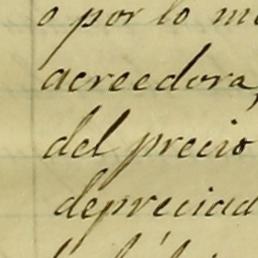 o por lo m
acreedora,
del precio
depreciad